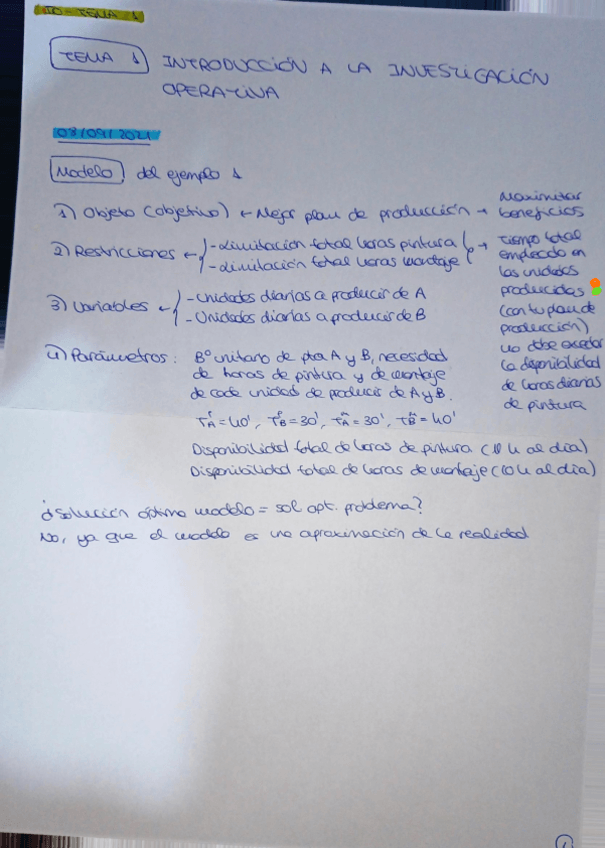 IO - TEMA 1
TEMA 1 INTRODUCCIÓN A LA INVESTIGACIÓN
OPERATIVA
03/09/2021
Modelo del ejemplo 1
1) Objeto (objetivo) ← Mejor plan de producción → Maximizar
beneficios
2) Restricciones ← { - Limitación total horas pintura
- Limitación total horas montaje } → Tiempo total
empleado en
las unidades
producidas
(con tu plan de
producción)
no debe exceder
la disponibilidad
de horas diarias
de pintura
3) Variables ← { - Unidades diarias a producir de A
- Unidades diarias a producir de B
4) Parámetros: Bº unitario de pta A y B, necesidad
de horas de pintura y de montaje
de cada unidad de producir de A y B.
T^P_A = 40', T^P_B = 30', T^M_A = 30', T^M_B = 40'
Disponibilidad total de horas de pintura (10 h al día)
Disponibilidad total de horas de montaje (10 h al día)
¿Solución óptima modelo = sol opt. problema?
No, ya que el modelo es una aproximación de la realidad
1